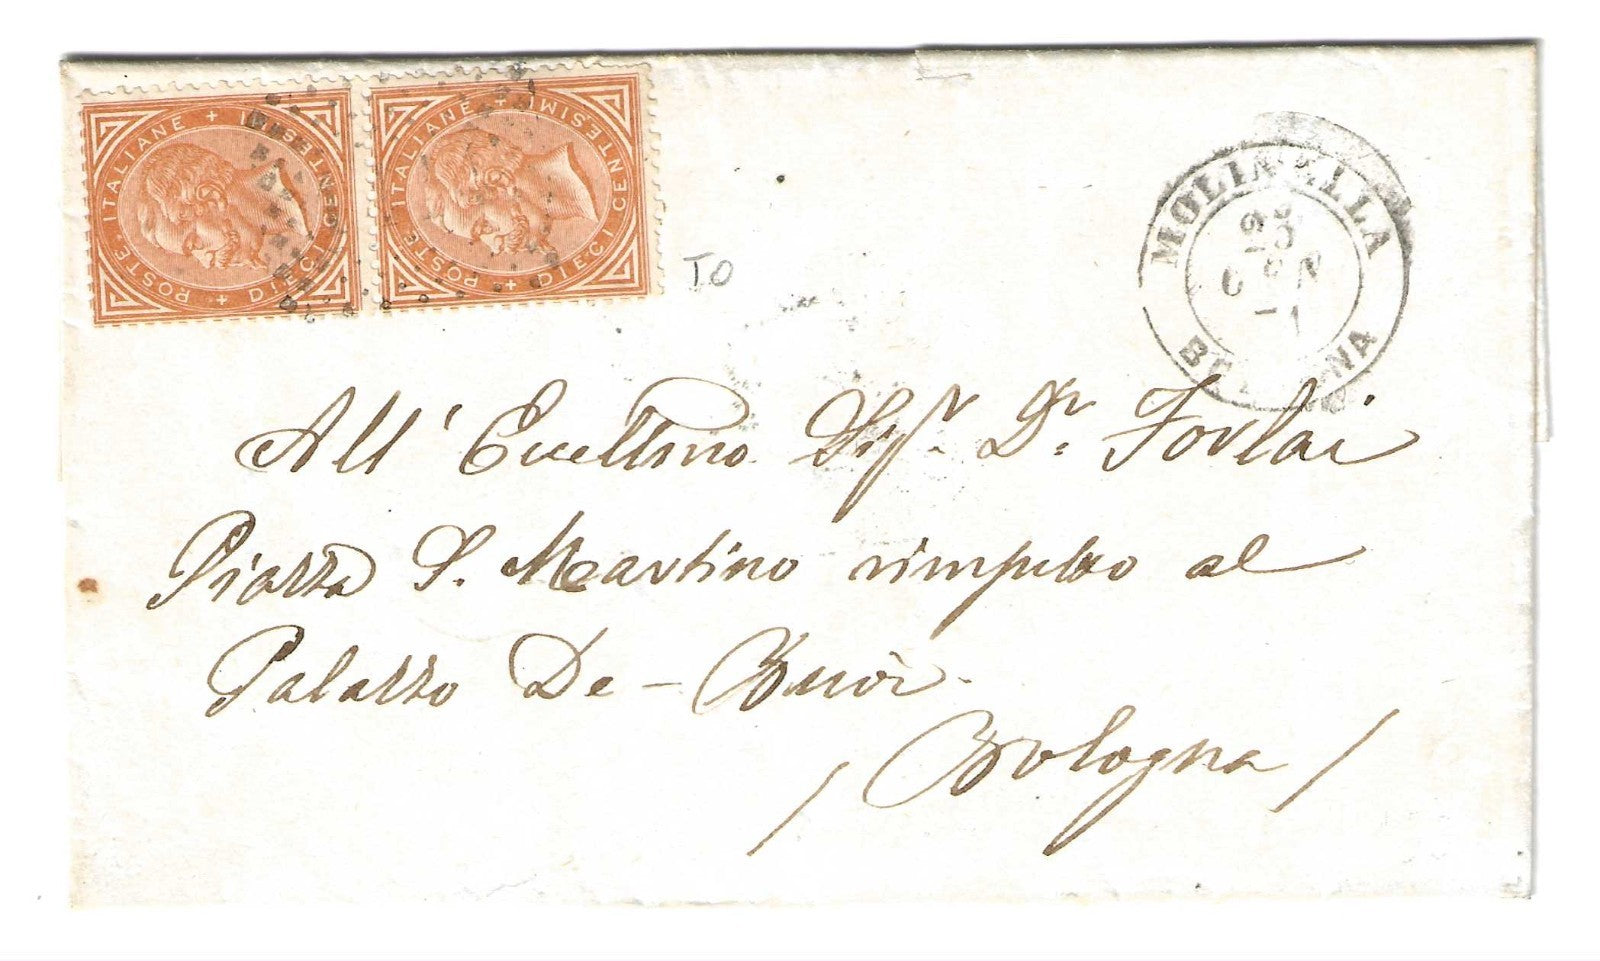 POSTE ITALIANE + CENTESIMI DIECI +
POSTE ITALIANE + CENTESIMI DIECI +
TO
MOLINELLA
25
1
BOLOGNA
All' Sigr. Dr. Forlai
Piazza S. Martino rimpetto al
Palazzo De-Buoi.
/ Bologna /